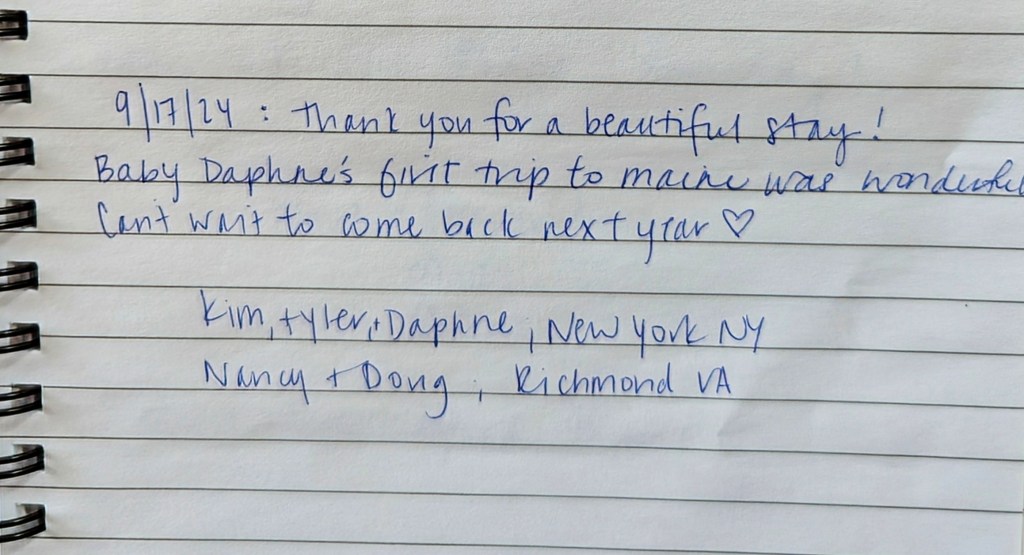 9/17/24 : Thank you for a beautiful stay!
Baby Daphne's first trip to maine was wonderful
Can't wait to come back next year ♡
Kim, tyler, + Daphne, New York NY
Nancy + Doug, Richmond VA